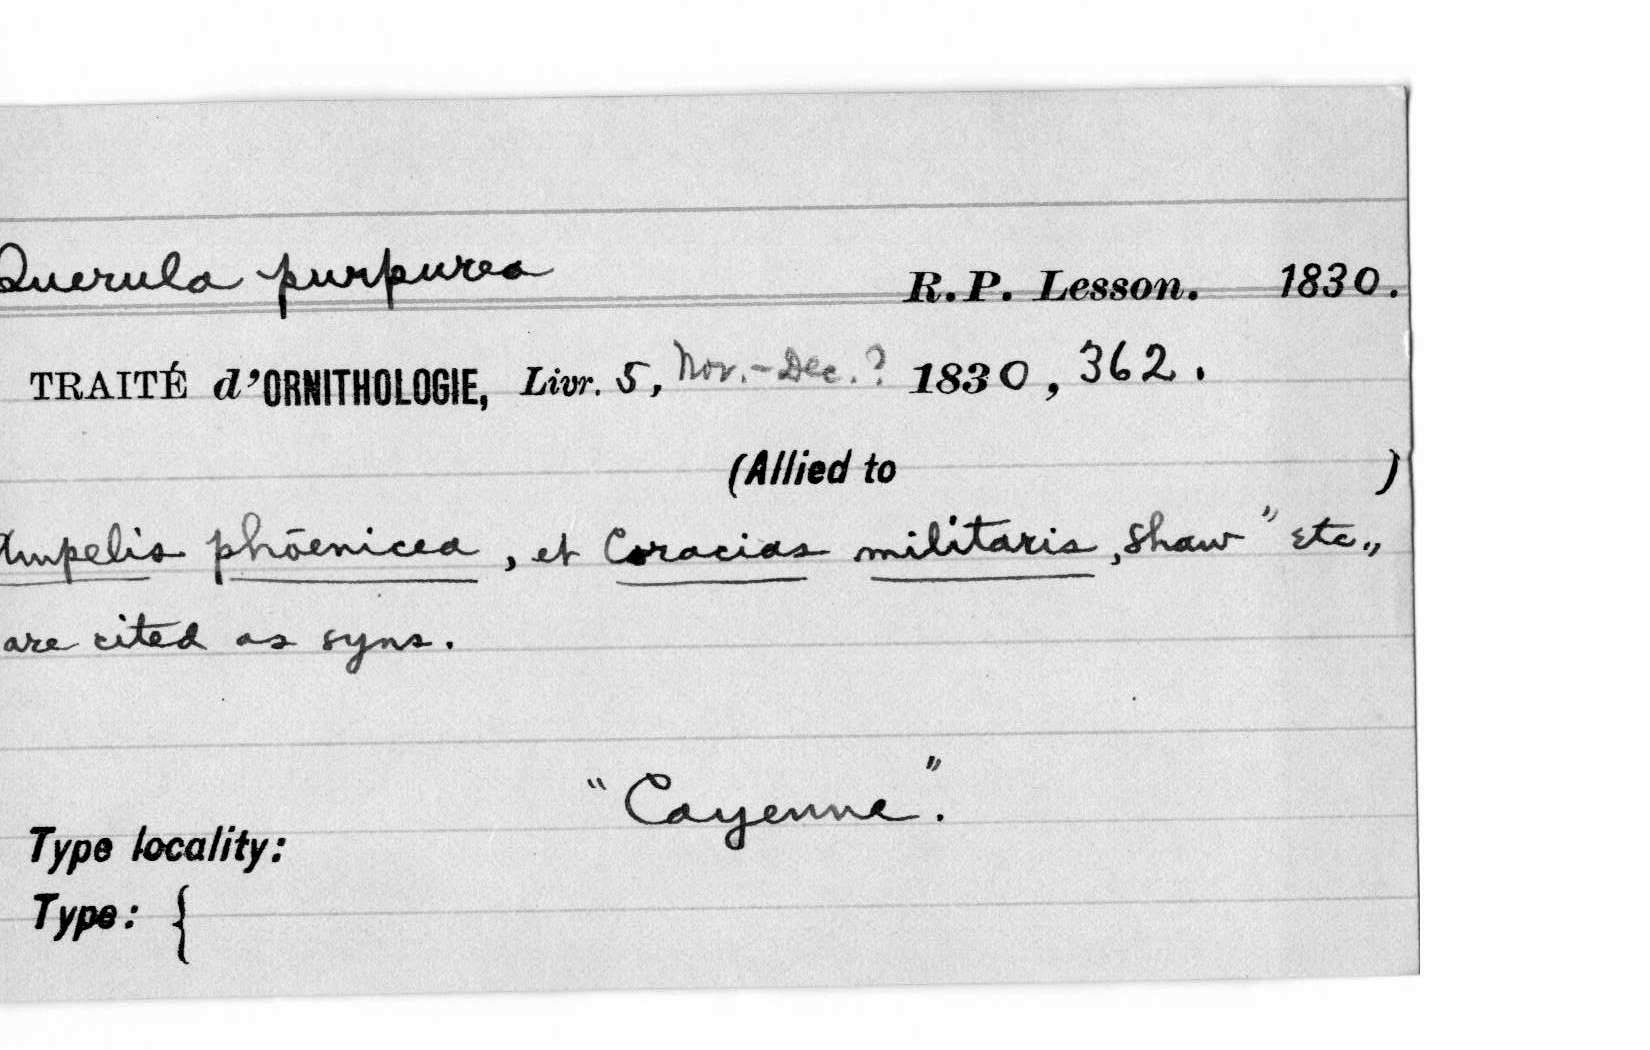 Querula purpurea R.P. Lesson. 1830.
TRAITÉ d'ORNITHOLOGIE, Livr. 5, Nov.-Dec.? 1830, 362.
(Allied to )
Ampelis phœnicea, et Coracias militaris, Shaw" etc.,
are cited as syns.
"Cayenne".
Type locality:
Type: {